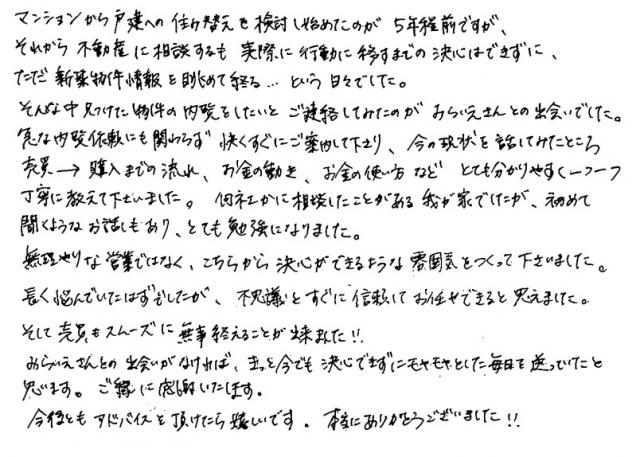 マンションから戸建への住み替えを検討し始めたのが5年程前ですが、
それから不動産に相談するも実際に行動に移すまでの決心はできずに、
ただただ新築物件情報を眺めて終る…という日々でした。
そんな中見つけた物件の内覧をしたいとご連絡してみたのがみらいえさんとの出会いでした。
急な内覧依頼にも関わらず快くすぐにご案内して下さり、今の現状を話してみたところ
売買→購入までの流れ、お金の動き、お金の使い方などとても分かりやすく一つ一つ
丁寧に教えて下さいました。何社かに相談したことがある我が家でしたが、初めて
聞くようなお話しもあり、とても勉強になりました。
無理やりな営業ではなく、こちらから決心ができるような雰囲気をつくって下さいました。
長く悩んでいたはずでしたが、不思議とすぐに信頼してお任せできると思えました。
そして売買もスムーズに無事終えることが出来ました!!
みらいえさんとの出会いがなければ、きっと今でも決心できずにモヤモヤとした毎日を送っていたと
思います。ご縁に感謝いたします。
今後ともアドバイスを頂けたら嬉しいです。本当にありがとうございました!!